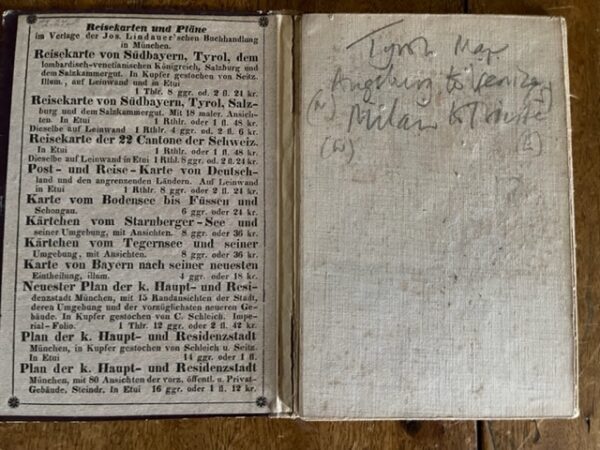 Reisekarten und Pläne
im Verlage der Jos. Lindauer'schen Buchhandlung
in München.
Reisekarte von Südbayern, Tyrol, dem
lombardisch-venetianischen Königreich, Salzburg und
dem Salzkammergut. In Kupfer gestochen von Seitz.
Illum., auf Leinwand und in Etui
1 Thlr. 8 ggr. od. 2 fl. 24 kr.
Reisekarte von Südbayern, Tyrol, Salz-
burg und dem Salzkammergut. Mit 18 maler. Ansich-
ten. In Etui 1 Rthlr. oder 1 fl. 48 kr.
Dieselbe auf Leinwand 1 Rthlr. 4 ggr. od. 2 fl. 6 kr.
Reisekarte der 22 Cantone der Schweiz.
In Etui 1 Rthlr. oder 1 fl. 48 kr.
Dieselbe auf Leinwand in Etui 1 Rthl. 8 ggr. od. 2 fl. 24 kr.
Post- und Reise-Karte von Deutsch-
land und den angrenzenden Ländern. Auf Leinwand
in Etui 1 Rthlr. 8 ggr. oder 2 fl. 24 kr.
Karte vom Bodensee bis Füssen und
Schongau. 6 ggr. oder 24 kr.
Kärtchen vom Starnberger-See und
seiner Umgebung, mit Ansichten. 8 ggr. oder 36 kr.
Kärtchen vom Tegernsee und seiner
Umgebung, mit Ansichten. 8 ggr. oder 36 kr.
Karte von Bayern nach seiner neuesten
Eintheilung, illum. 4 ggr. oder 18 kr.
Neuester Plan der k. Haupt- und Resi-
denzstadt München, mit 15 Randansichten der Stadt,
deren Umgebung und der vorzüglichsten neueren Ge-
bäude. In Kupfer gestochen von C. Schleich. Impe-
rial-Folio. 1 Thlr. 12 ggr. oder 2 fl. 42 kr.
Plan der k. Haupt- und Residenzstadt
München, in Kupfer gestochen v. Schleich u. Seitz.
In Etui 14 ggr. oder 1 fl.
Plan der k. Haupt- und Residenzstadt
München, mit 80 Ansichten der vorz. öffentl. u. Privat-
Gebäude. Steindr. In Etui 16 ggr. oder 1 fl. 12 kr.
Tyrol Map
Augsburg to Venice
(N)
Milan to Trieste
(W) (E)